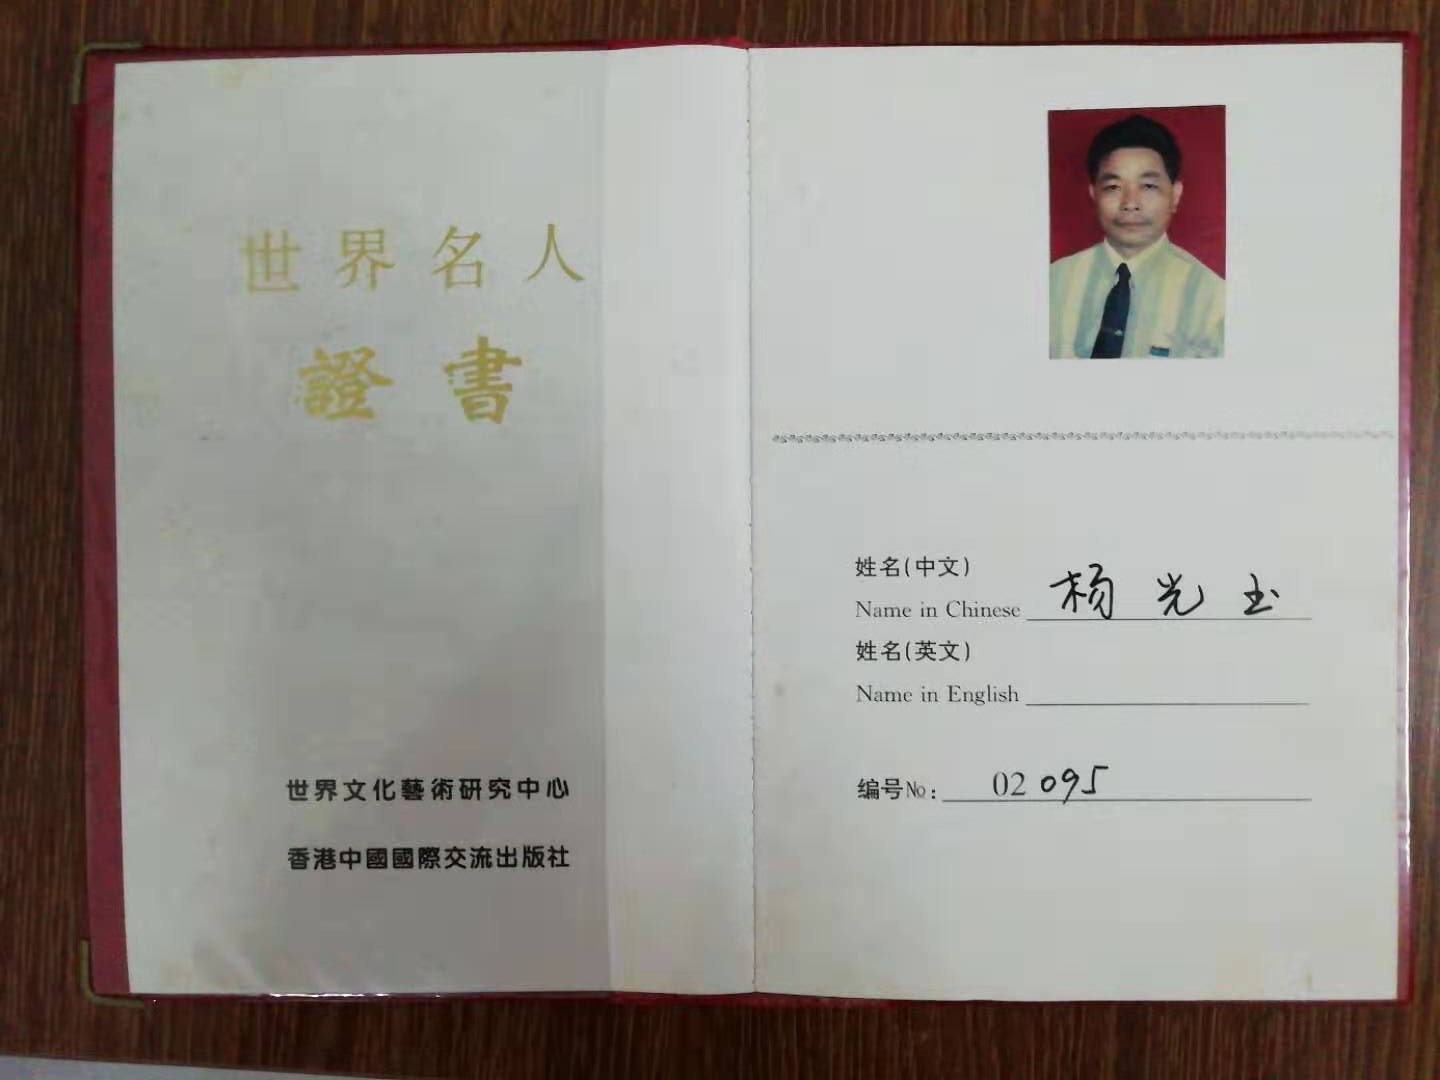 世界名人
證書
世界文化藝術研究中心
香港中國國際交流出版社
姓名(中文)
Name in Chinese 杨光玉
姓名(英文)
Name in English
编号№: 02095